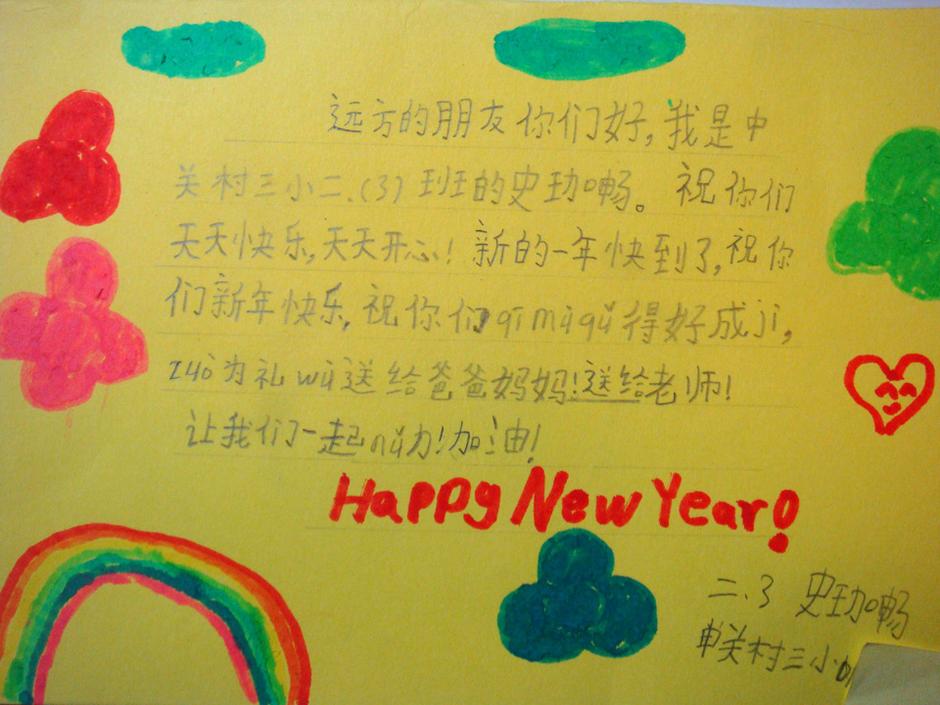 远方的朋友你们好,我是中
关村三小二.(3)班的史玏畅。祝你们
天天快乐,天天开心!新的一年快到了,祝你
们新年快乐,祝你们qī mù qǔ得好成jì,
zuò为礼wù送给爸爸妈妈!送给老师!
让我们一起nǔ力!加油!
Happy New Year!
二.3 史玏畅
中关村三小